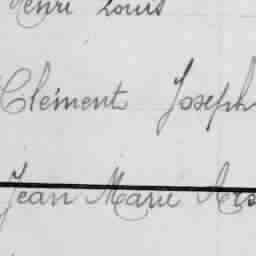 Henri Louis
Clément Joseph
Jean Marie